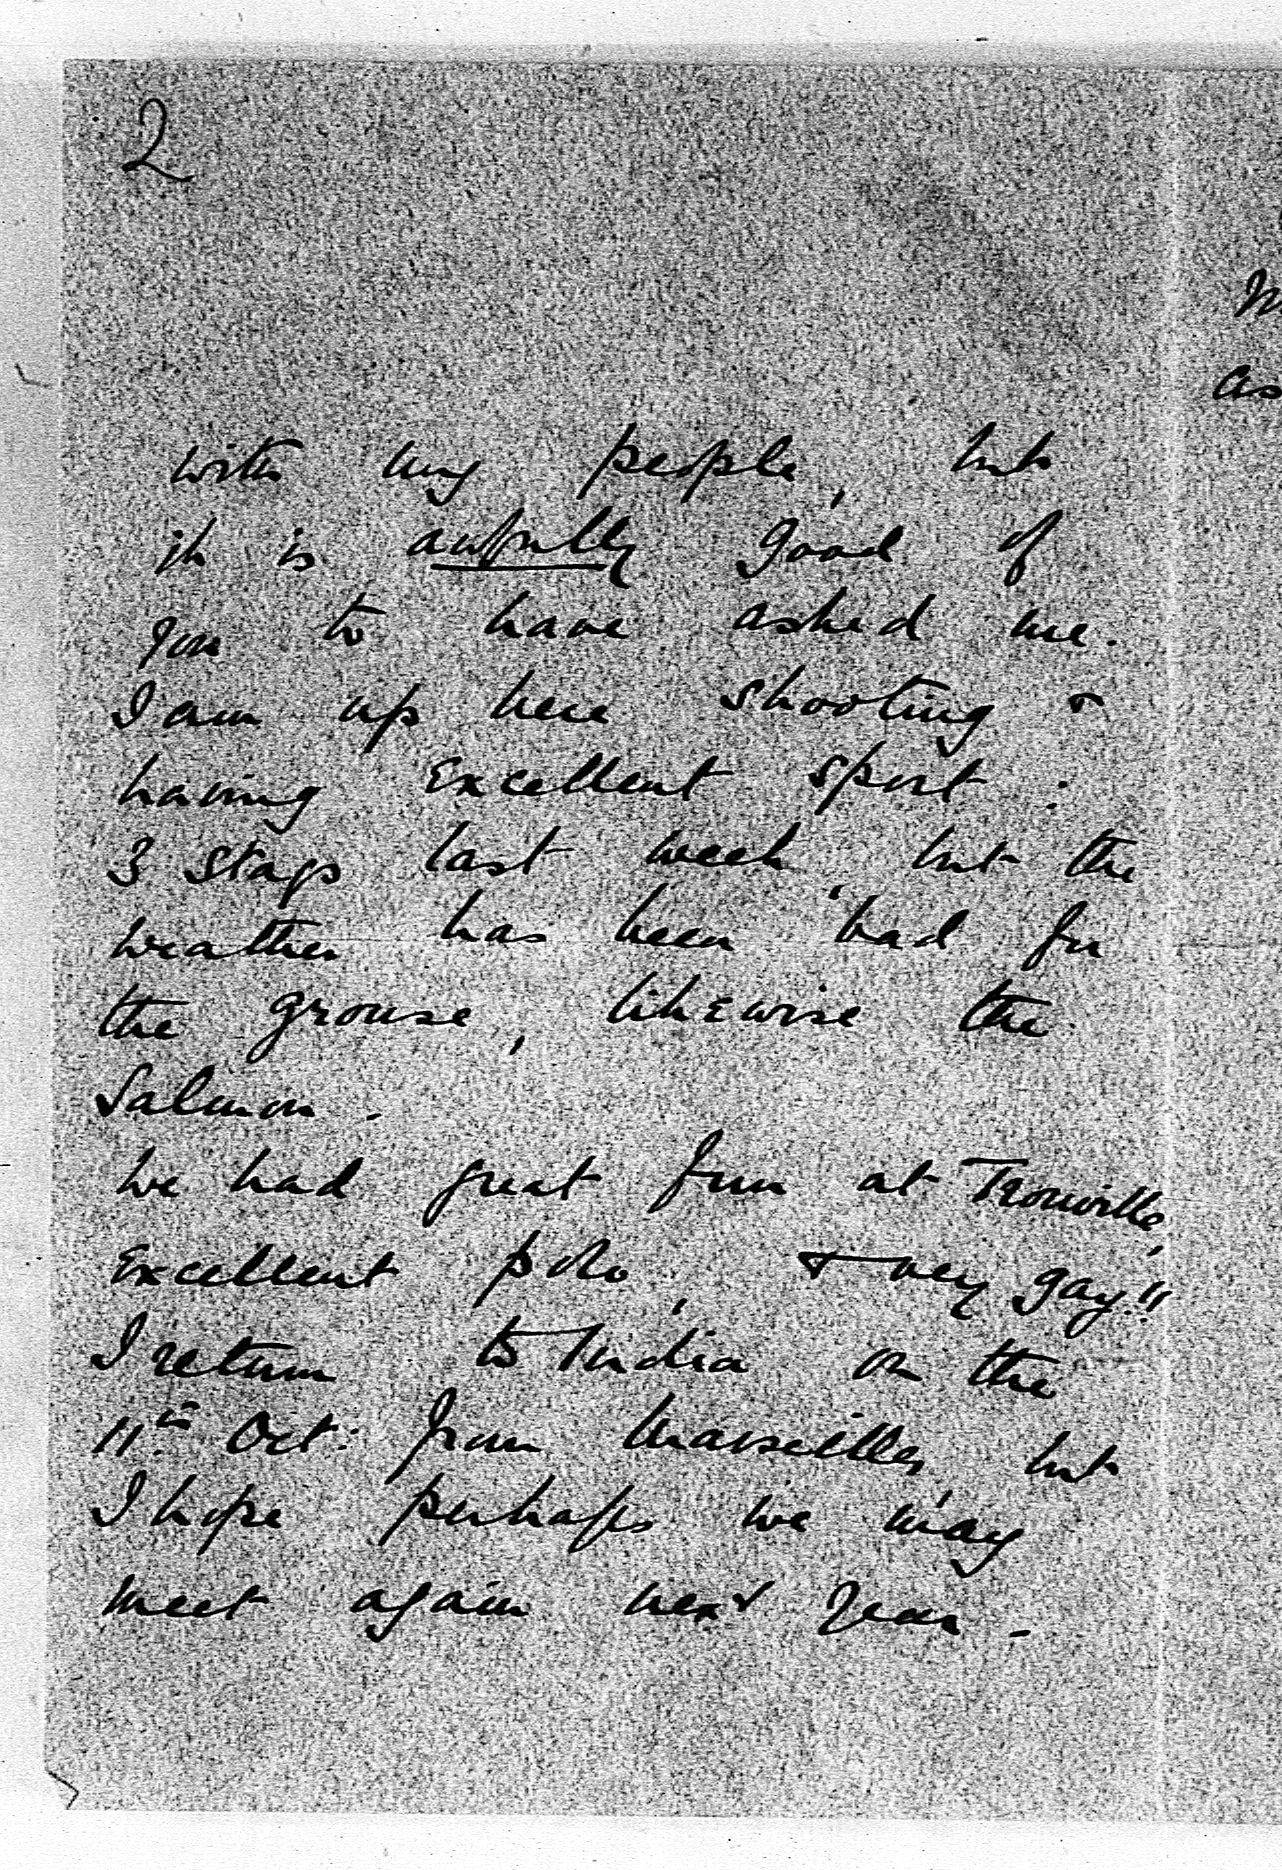 2
with my people, but
it is awfully good of
you to have asked me.
I am up here shooting &
having excellent sport :
3 stags last week, but the
weather has been bad for
the grouse, likewise the
Salmon.
We had great fun at Trouville,
Excellent polo, & very gay!!
I return to India on the
11th Oct: from Marseilles, but
I hope perhaps we may
meet again next year.
as